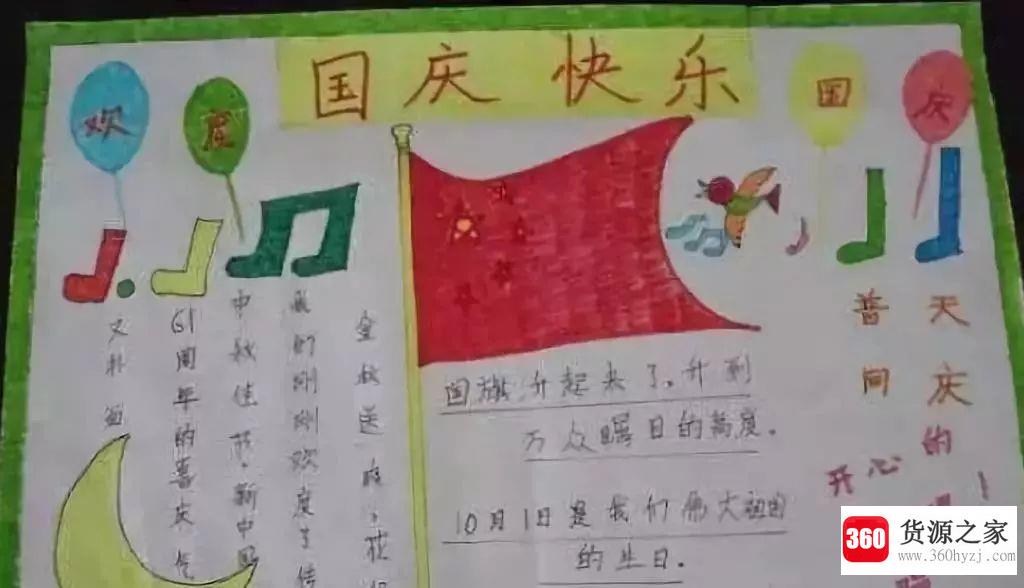 国庆快乐
欢度
国庆
国旗升起来了。升到
万众瞩目的高度。
10月1日是我们伟大祖国
的生日。
金秋送
刚刚欢度了
中秋佳节。新中国
61周年的喜庆气
又扑
普天
同庆的
开心
360
货源之家
www.360hyzj.com